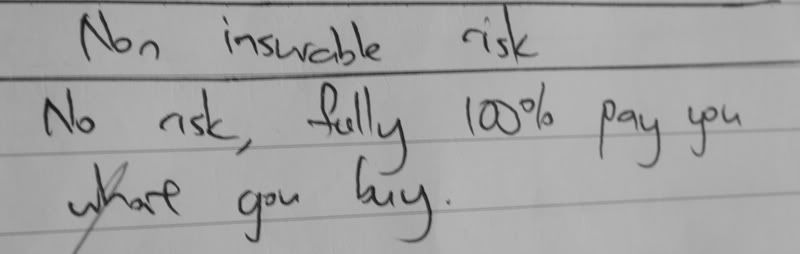 Non insurable risk
No risk, fully 100% pay you
whare you buy.